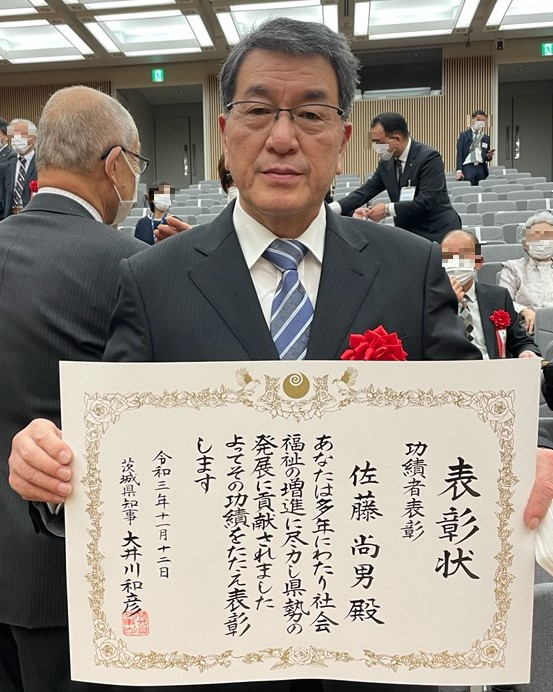 表彰状
功績者表彰
佐藤尚男殿
あなたは多年にわたり社会
福祉の増進に尽力し県勢の
発展に貢献されました
よってその功績をたたえ表彰
します
令和三年十一月十二日
茨城県知事 大井川和彦